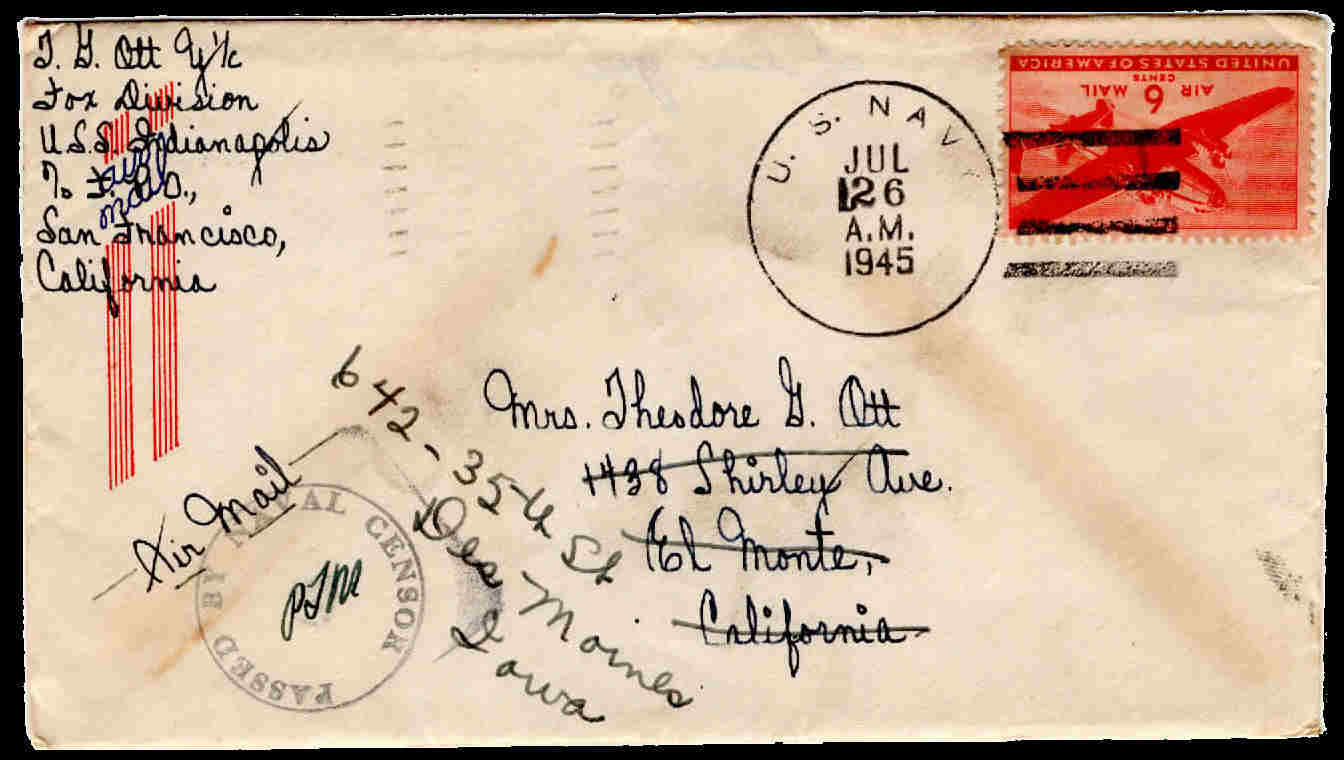 T. G. Ott Y1/c
Fox Division
U.S.S. Indianapolis
℅ F.P.O.,
San Francisco,
California
Air
Mail
U. S. NAV
JUL
26
A.M.
1945
UNITED STATES OF AMERICA
AIR 6 MAIL
CENTS
Mrs. Theodore G. Ott
1438 Shirley Ave.
El Monte,
California
642-35th St
Des Moines
Iowa
Air Mail
PASSED BY NAVAL CENSOR